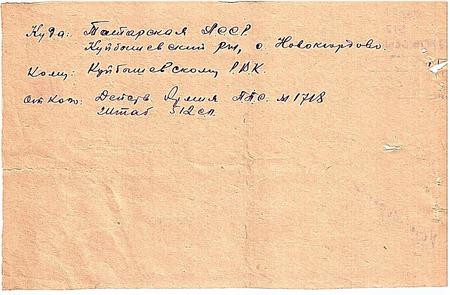 Куда: Татарская АССР.
Куйбышевский р-н, с. Новокиурдово
Кому: Куйбышевскому Р.В.К.
От кого: Действ. Армия П.П.С. № 1718
Штаб 512 сп.